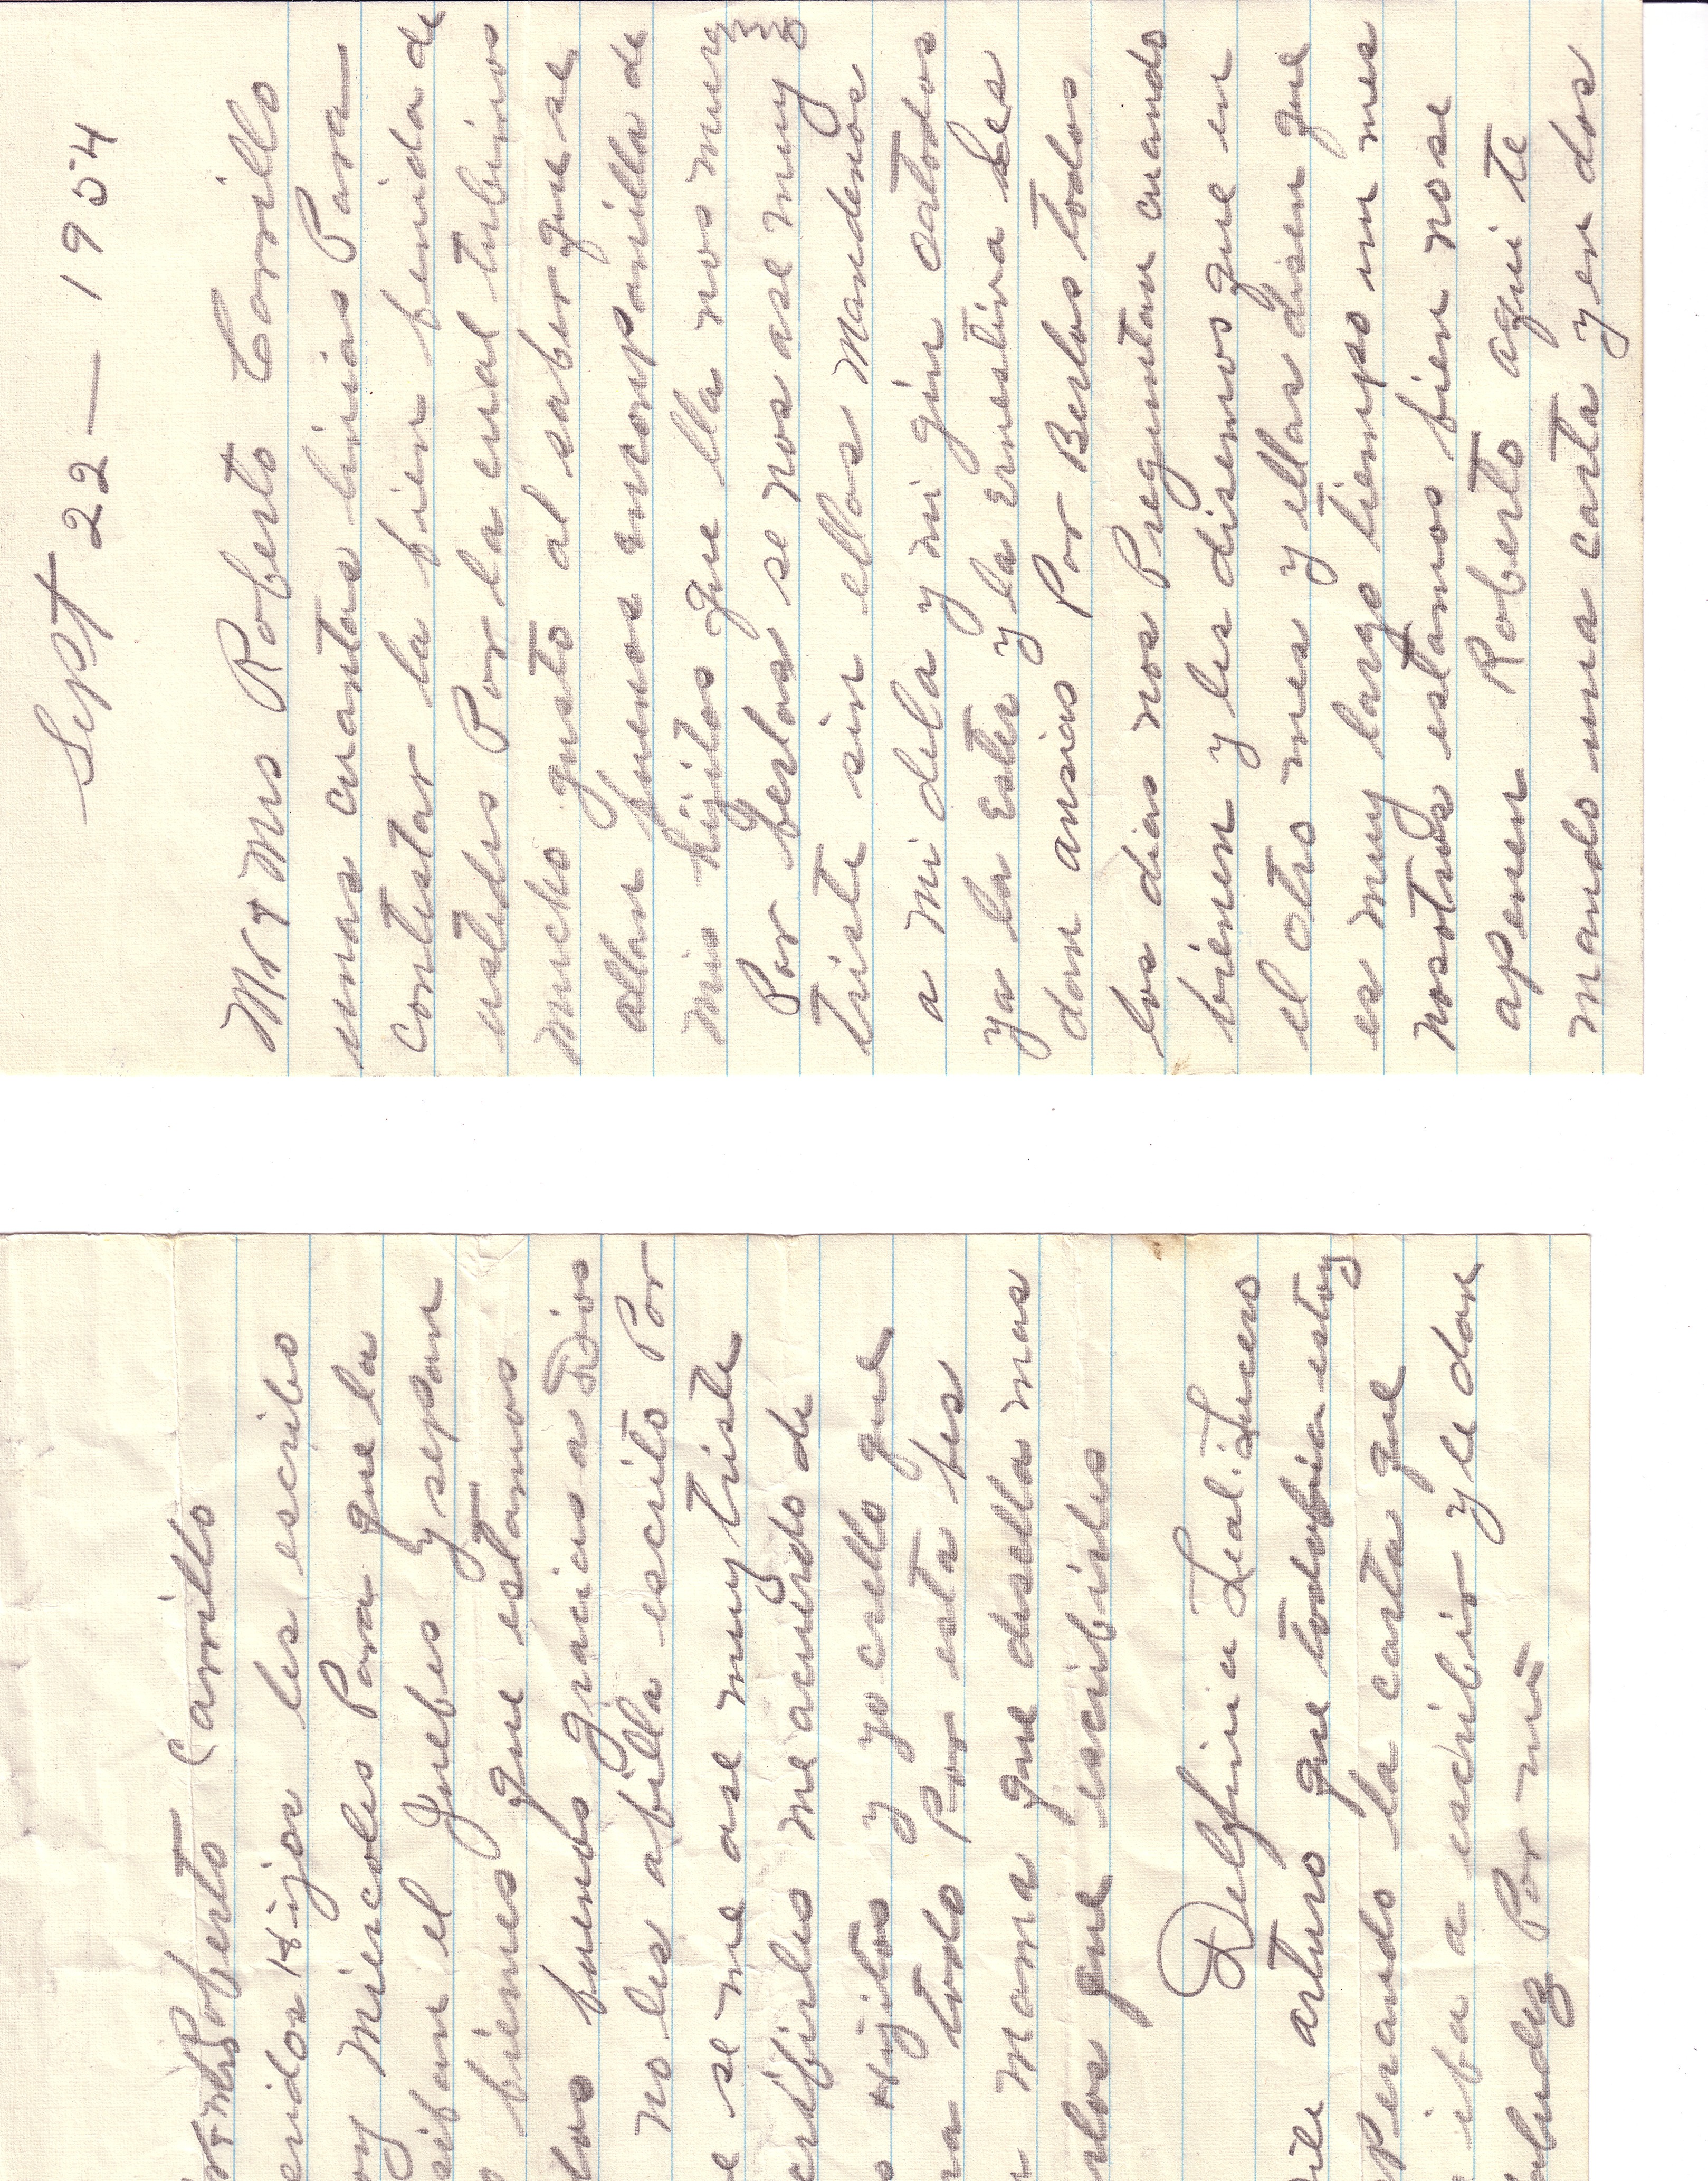 Sept 22 — 1954
Mr & Mrs Roberto Carrillo
unas cuantas linias Para
contestar la bien benida de
ustedes Por la cual tubimos
mucho gusto al saber que se
allan buenos encompanilla de
mis hijitos que lla nos muer
Por berlos se nos ase muy
triste sin ellos mandenos
a mi dela y mi gin atodos
ya la Ester y la Ernestina se
dan ansias Por Berlos todos
los dias nos Preguntan cuando
bienen y les disemos que en
el otro mes y ellas disen que
es muy largo tiempo un mes
nosotros estamos bien no se
apenen Roberto aqui te
mando una carta y en dos
Roberto Carrillo
eridos Hijos les escribo
oy miercoles Para que la
siban el Juebes y sepan
bienes que estamos
dos buenos gracias a Dios
no les abilla escrito Por
e se me ase muy triste
cribirles me acuerdo de
s Hijitos y yo crello que
ra todo Por esta bes
n mama que desella mas
rlos que escribirles
Delfinia Leal. Lucero
ile arturo que todabia estoy
sperando la carta que
iba a escribir y le dan
aludez Por mi